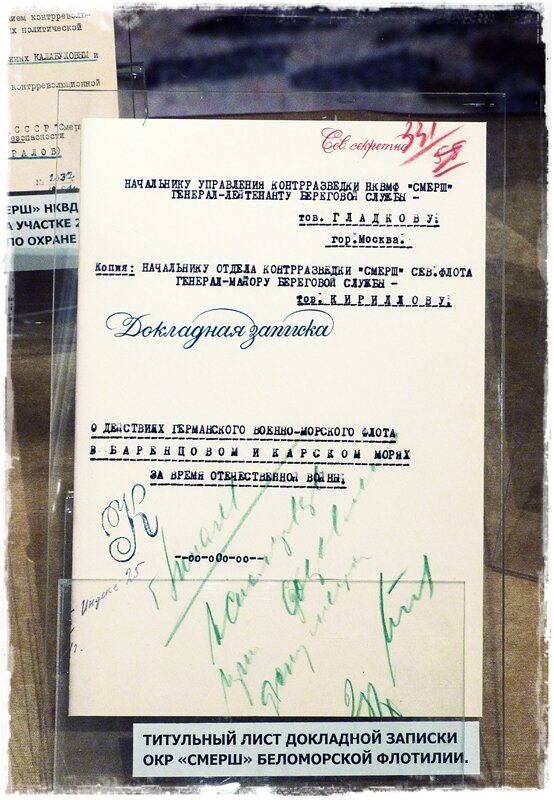 нием контрреволю-
х политической
нных КАЛАБУХОВЫМ и
контрреволюционной
СССР "Смерш"
безопасности
РАЛОВ)
№ 2032
ЕРШ» НКВД
А УЧАСТКЕ 2
ПО ОХРАНЕ
Сов. секретно
331
58
НАЧАЛЬНИКУ УПРАВЛЕНИЯ КОНТРРАЗВЕДКИ НКВМФ "СМЕРШ"
ГЕНЕРАЛ-ЛЕЙТЕНАНТУ БЕРЕГОВОЙ СЛУЖБЫ -
тов. ГЛАДКОВУ.
гор.Москва.
Копия: НАЧАЛЬНИКУ ОТДЕЛА КОНТРРАЗВЕДКИ "СМЕРШ" СЕВ.ФЛОТА
ГЕНЕРАЛ-МАЙОРУ БЕРЕГОВОЙ СЛУЖБЫ -
тов. КИРИЛЛОВУ.
Докладная записка
О ДЕЙСТВИЯХ ГЕРМАНСКОГО ВОЕННО-МОРСКОГО ФЛОТА
В БАРЕНЦОВОМ И КАРСКОМ МОРЯХ
ЗА ВРЕМЯ ОТЕЧЕСТВЕННОЙ ВОЙНЫ.
К
--оо-оОо-оо--
Индекс 25
ТИТУЛЬНЫЙ ЛИСТ ДОКЛАДНОЙ ЗАПИСКИ
ОКР «СМЕРШ» БЕЛОМОРСКОЙ ФЛОТИЛИИ.